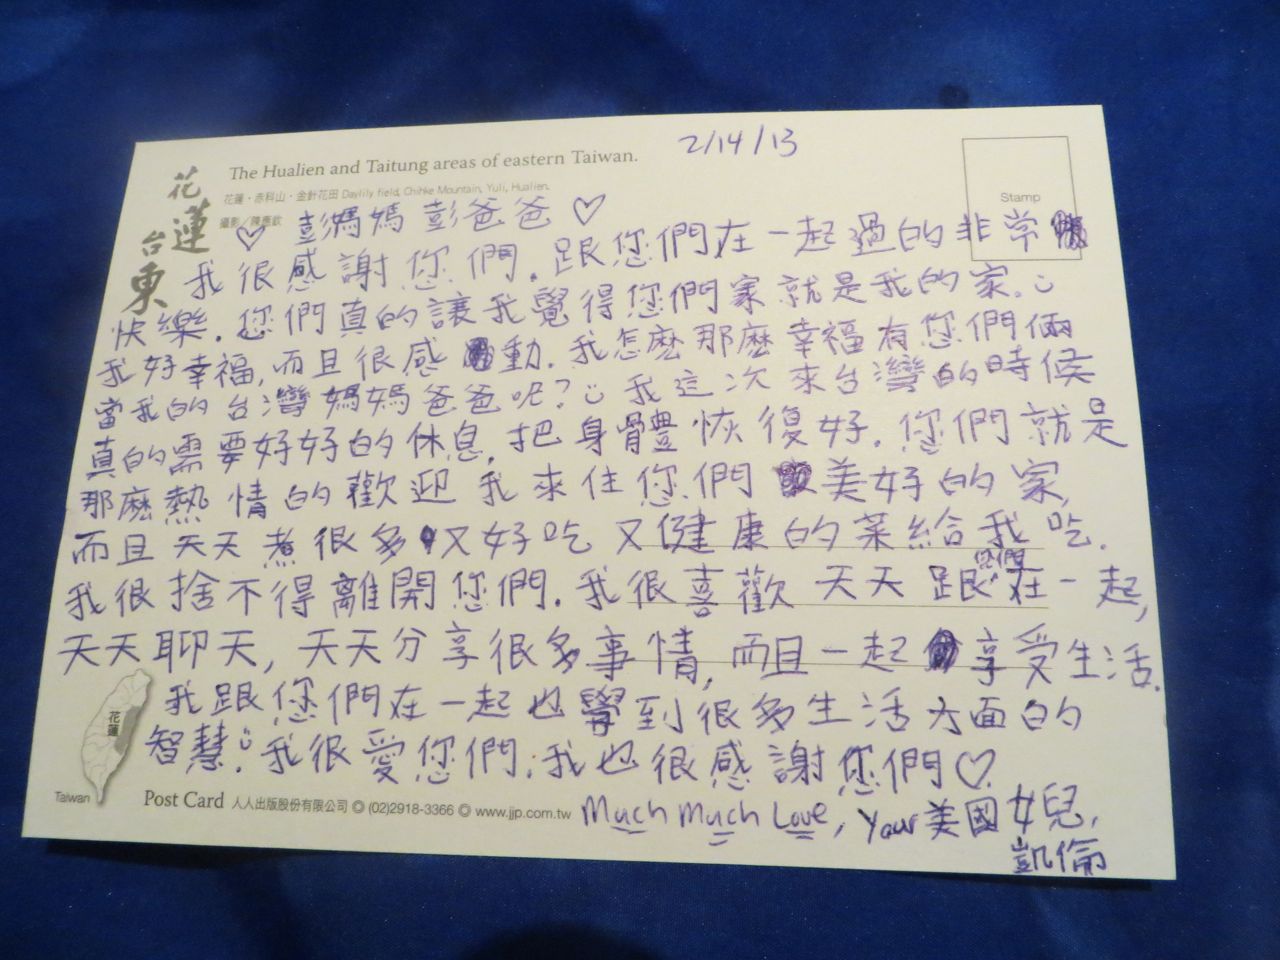 2/14/13
The Hualien and Taitung areas of eastern Taiwan.
花蓮・赤科山・金針花田 Daylily field, Chihke Mountain, Yuli, Hualien.
攝影／陳
Stamp
花蓮
台東
♡ 彭媽媽 彭爸爸 ♡
我很感謝您們. 跟您們在一起過的非常
快樂. 您們真的讓我覺得您們家就是我的家.
我好幸福, 而且很感動. 我怎麽那麽幸福有您們倆
當我的台灣媽媽爸爸呢? 我這次來台灣的時候
真的需要好好的休息, 把身體恢復好. 您們就是
那麽熱情的歡迎我來住您們美好的家,
而且天天煮很多又好吃又健康的菜給我吃.
我很捨不得離開您們. 我很喜歡天天跟您們在一起,
天天聊天, 天天分享很多事情, 而且一起享受生活.
我跟您們在一起也學到很多生活方面的
智慧. 我很愛您們. 我也很感謝您們♡.
Much Much Love, Your 美國女兒,
凱倫
花蓮
Taiwan
Post Card 人人出版股份有限公司 ◎ (02)2918-3366 ◎ www.jjp.com.tw